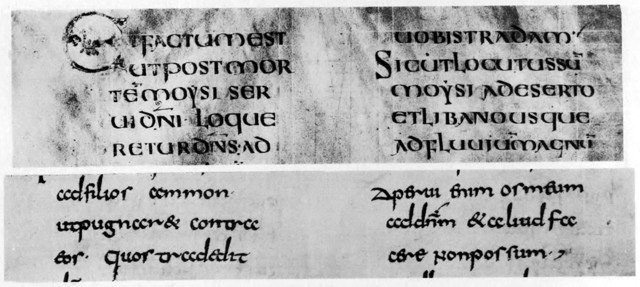 ET FACTUM EST
UT POST MOR
TĒ MOYSI SER
UI DN̄I LOQUE
RETUR DN̄S AD
UOBIS TRADAM·
SICUT LOCUTUS SŪ
MOYSI A DESERTO
ET LIBANO USQUE
AD FLUUIUM MAGNŪ
ad filios ammon·
ut pugnar& contra
eos· Quos tradedit
Aperui enim os meum
ad dn̄m & aliud fa
cere non possum·